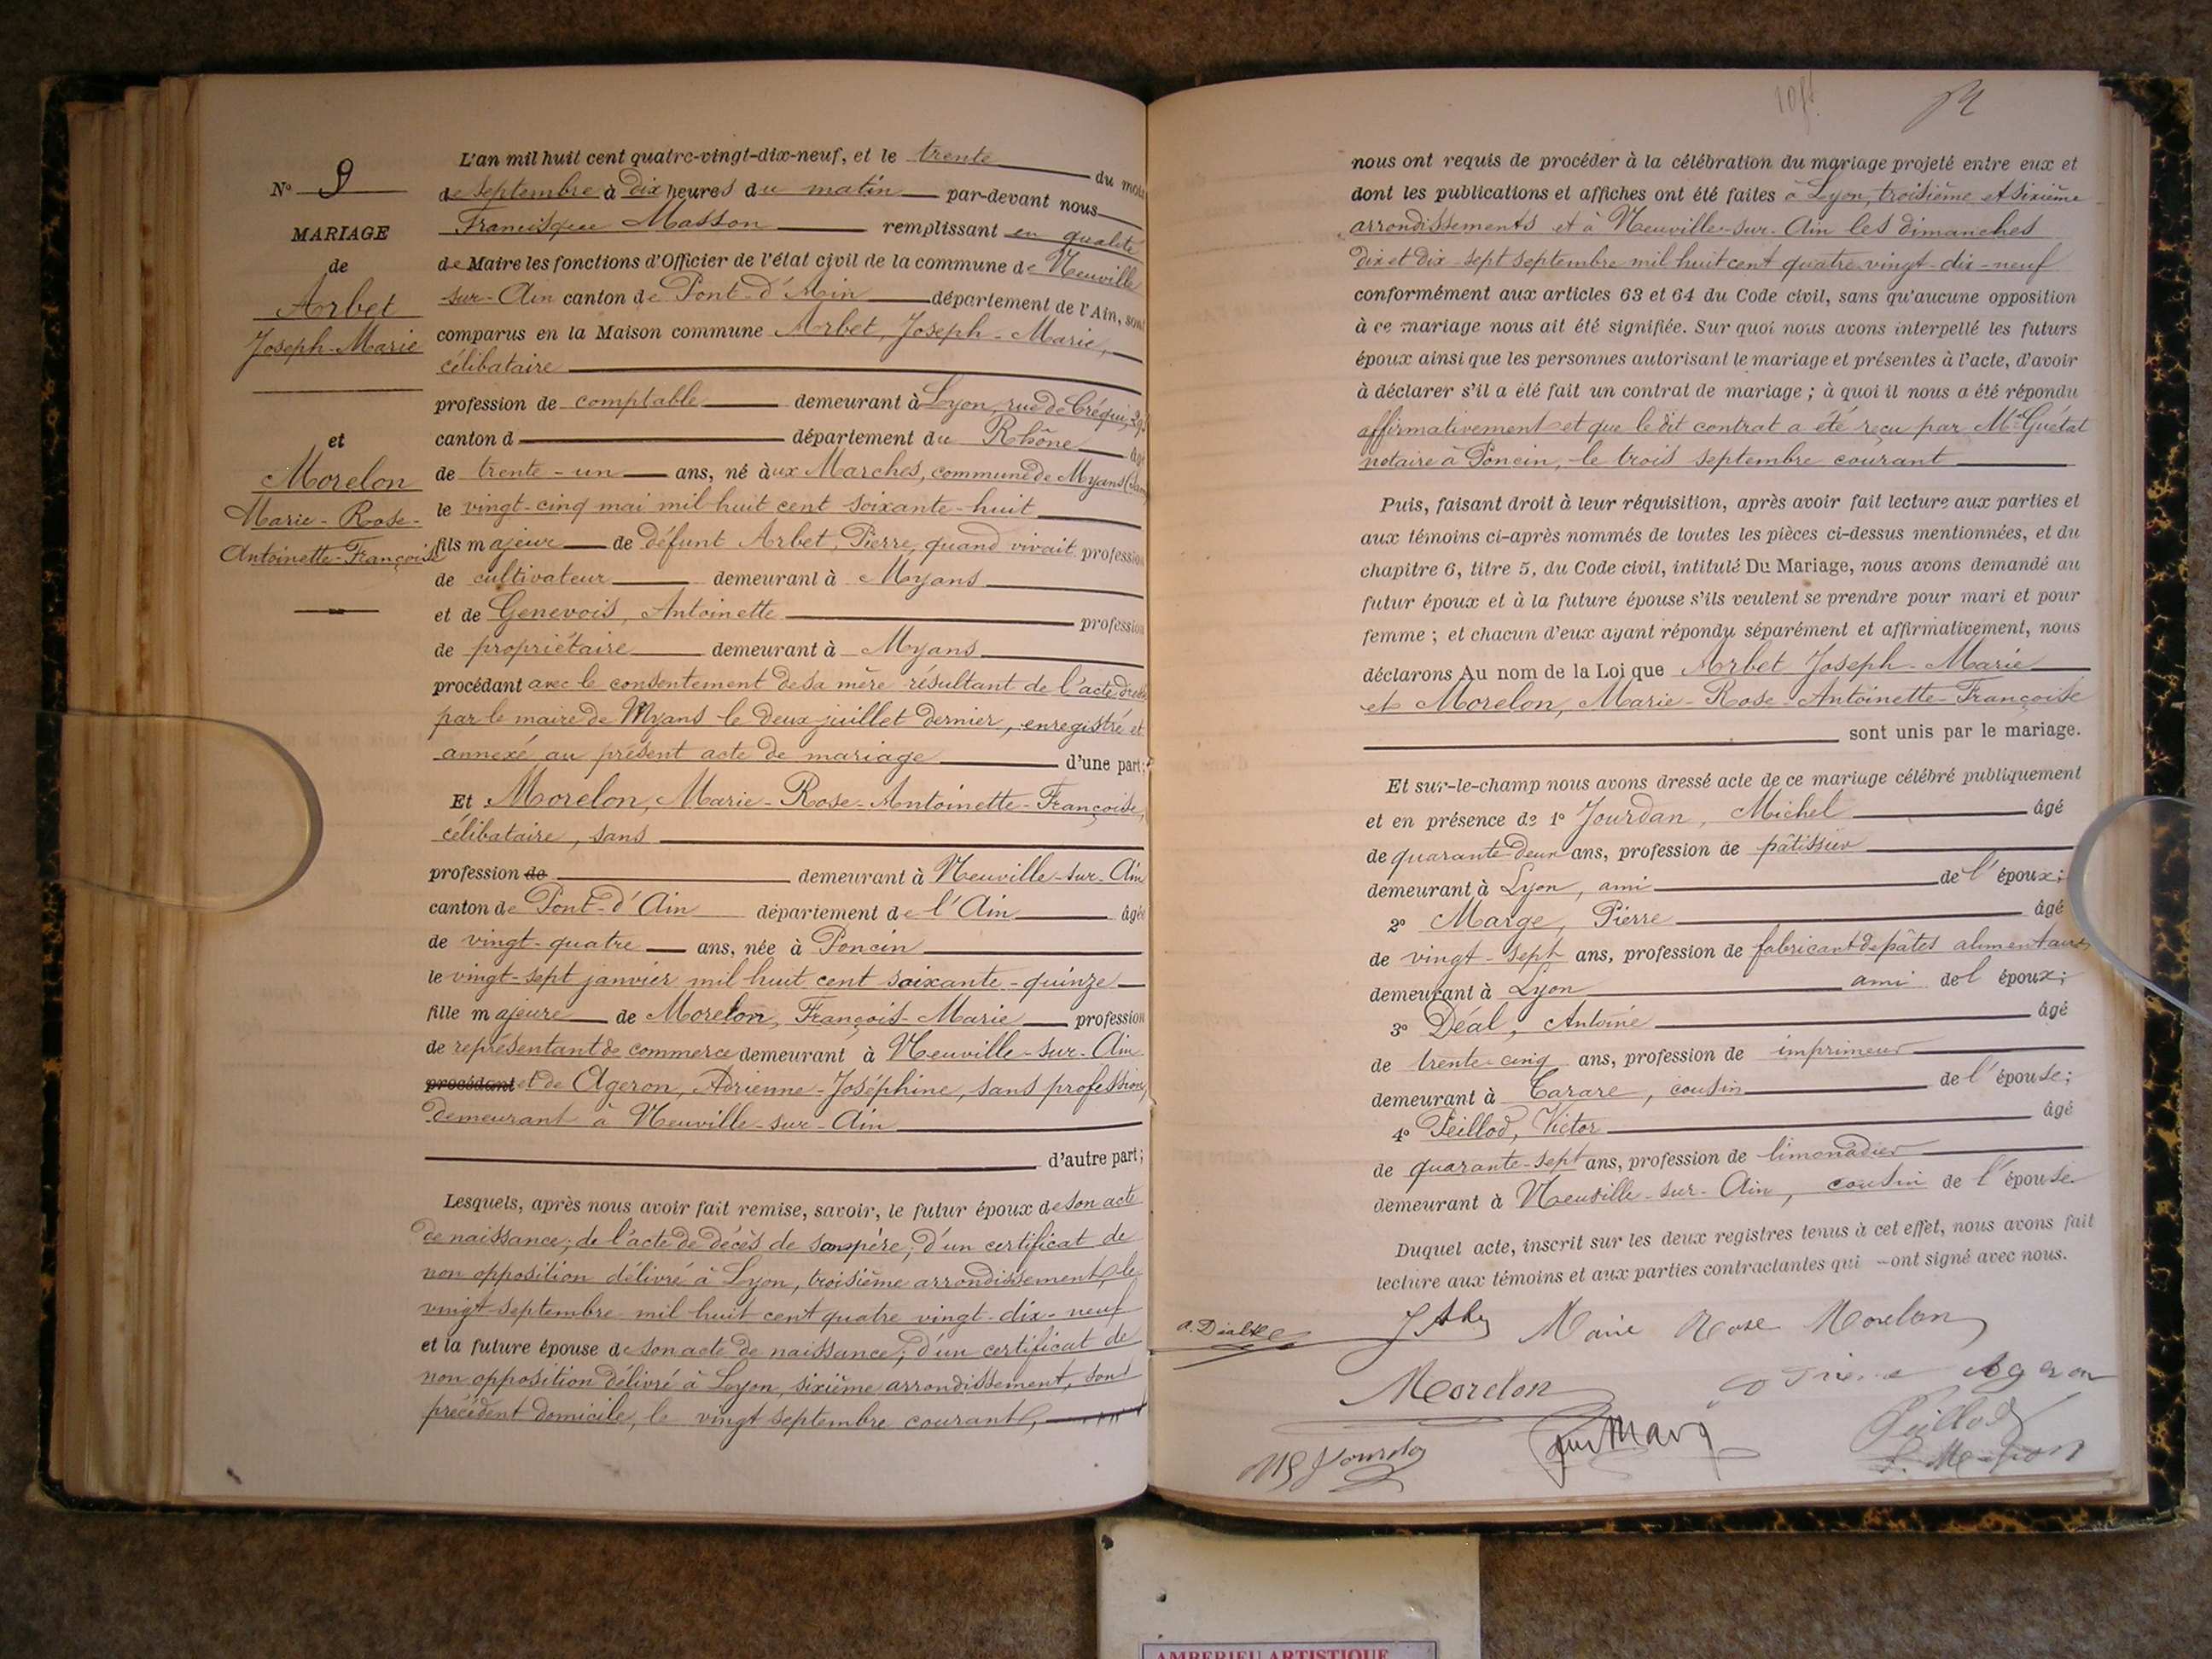 N° 9
MARIAGE
de
Arbet
Joseph-Marie
et
Morelon
Marie-Rose-
Antoinette-Françoise
L'an mil huit cent quatre-vingt-dix-neuf, et le trente du mois
de septembre à dix heures du matin par-devant nous
Francisque Masson remplissant en qualité
de Maire les fonctions d'Officier de l'état civil de la commune de Neuville
sur-Ain canton de Pont-d'Ain département de l'Ain, sont
comparus en la Maison commune Arbet, Joseph-Marie,
célibataire
profession de comptable demeurant à Lyon, rue de Créqui,
canton d département du Rhône âgé
de trente-un ans, né aux Marches, commune de Myans
le vingt-cinq mai mil huit cent soixante-huit
fils majeur de défunt Arbet, Pierre, quand vivait profession
de cultivateur demeurant à Myans
et de Genevois, Antoinette profession
de propriétaire demeurant à Myans
procédant avec le consentement de sa mère résultant de l'acte dressé
par le maire de Myans le deux juillet dernier, enregistré et
annexé au présent acte de mariage d'une part;
Et Morelon, Marie-Rose-Antoinette-Françoise,
célibataire, sans
profession de demeurant à Neuville-sur-Ain
canton de Pont-d'Ain département de l'Ain âgée
de vingt-quatre ans, née à Poncin
le vingt-sept janvier mil huit cent soixante-quinze
fille majeure de Morelon, François-Marie profession
de représentant de commerce demeurant à Neuville-sur-Ain
procédant et de Ageron, Adrienne-Joséphine, sans profession,
demeurant à Neuville-sur-Ain
d'autre part;
Lesquels, après nous avoir fait remise, savoir, le futur époux de son acte
de naissance; de l'acte de décès de son père; d'un certificat de
non opposition délivré à Lyon, troisième arrondissement, le
vingt septembre mil huit cent quatre vingt-dix-neuf
et la future épouse de son acte de naissance; d'un certificat de
non opposition délivré à Lyon, sixième arrondissement, son
précédent domicile, le vingt septembre courant,
nous ont requis de procéder à la célébration du mariage projeté entre eux et
dont les publications et affiches ont été faites à Lyon, troisième et sixième
arrondissements et à Neuville-sur-Ain les dimanches
dix et dix-sept septembre mil huit cent quatre vingt-dix-neuf
conformément aux articles 63 et 64 du Code civil, sans qu'aucune opposition
à ce mariage nous ait été signifiée. Sur quoi nous avons interpellé les futurs
époux ainsi que les personnes autorisant le mariage et présentes à l'acte, d'avoir
à déclarer s'il a été fait un contrat de mariage; à quoi il nous a été répondu
affirmativement et que le dit contrat a été reçu par Me Guétat
notaire à Poncin, le trois septembre courant
Puis, faisant droit à leur réquisition, après avoir fait lecture aux parties et
aux témoins ci-après nommés de toutes les pièces ci-dessus mentionnées, et du
chapitre 6, titre 5, du Code civil, intitulé Du Mariage, nous avons demandé au
futur époux et à la future épouse s'ils veulent se prendre pour mari et pour
femme; et chacun d'eux ayant répondu séparément et affirmativement, nous
déclarons Au nom de la Loi que Arbet Joseph-Marie
et Morelon, Marie-Rose-Antoinette-Françoise
sont unis par le mariage.
Et sur-le-champ nous avons dressé acte de ce mariage célébré publiquement
et en présence de 1° Jourdan, Michel âgé
de quarante-deux ans, profession de pâtissier
demeurant à Lyon, ami de l'époux;
2° Marge, Pierre âgé
de vingt-sept ans, profession de fabricant de pâtes alimentaires
demeurant à Lyon ami de l'époux;
3° Déal, Antoine âgé
de trente-cinq ans, profession de imprimeur
demeurant à Tarare, cousin de l'épouse;
4° Peillod, Victor âgé
de quarante-sept ans, profession de limonadier
demeurant à Neuville-sur-Ain, cousin de l'épouse.
Duquel acte, inscrit sur les deux registres tenus à cet effet, nous avons fait
lecture aux témoins et aux parties contractantes qui ont signé avec nous.
Marie Rose Morelon
Morelon Ageron
Peillod
AMBERIEU ARTISTIQUE